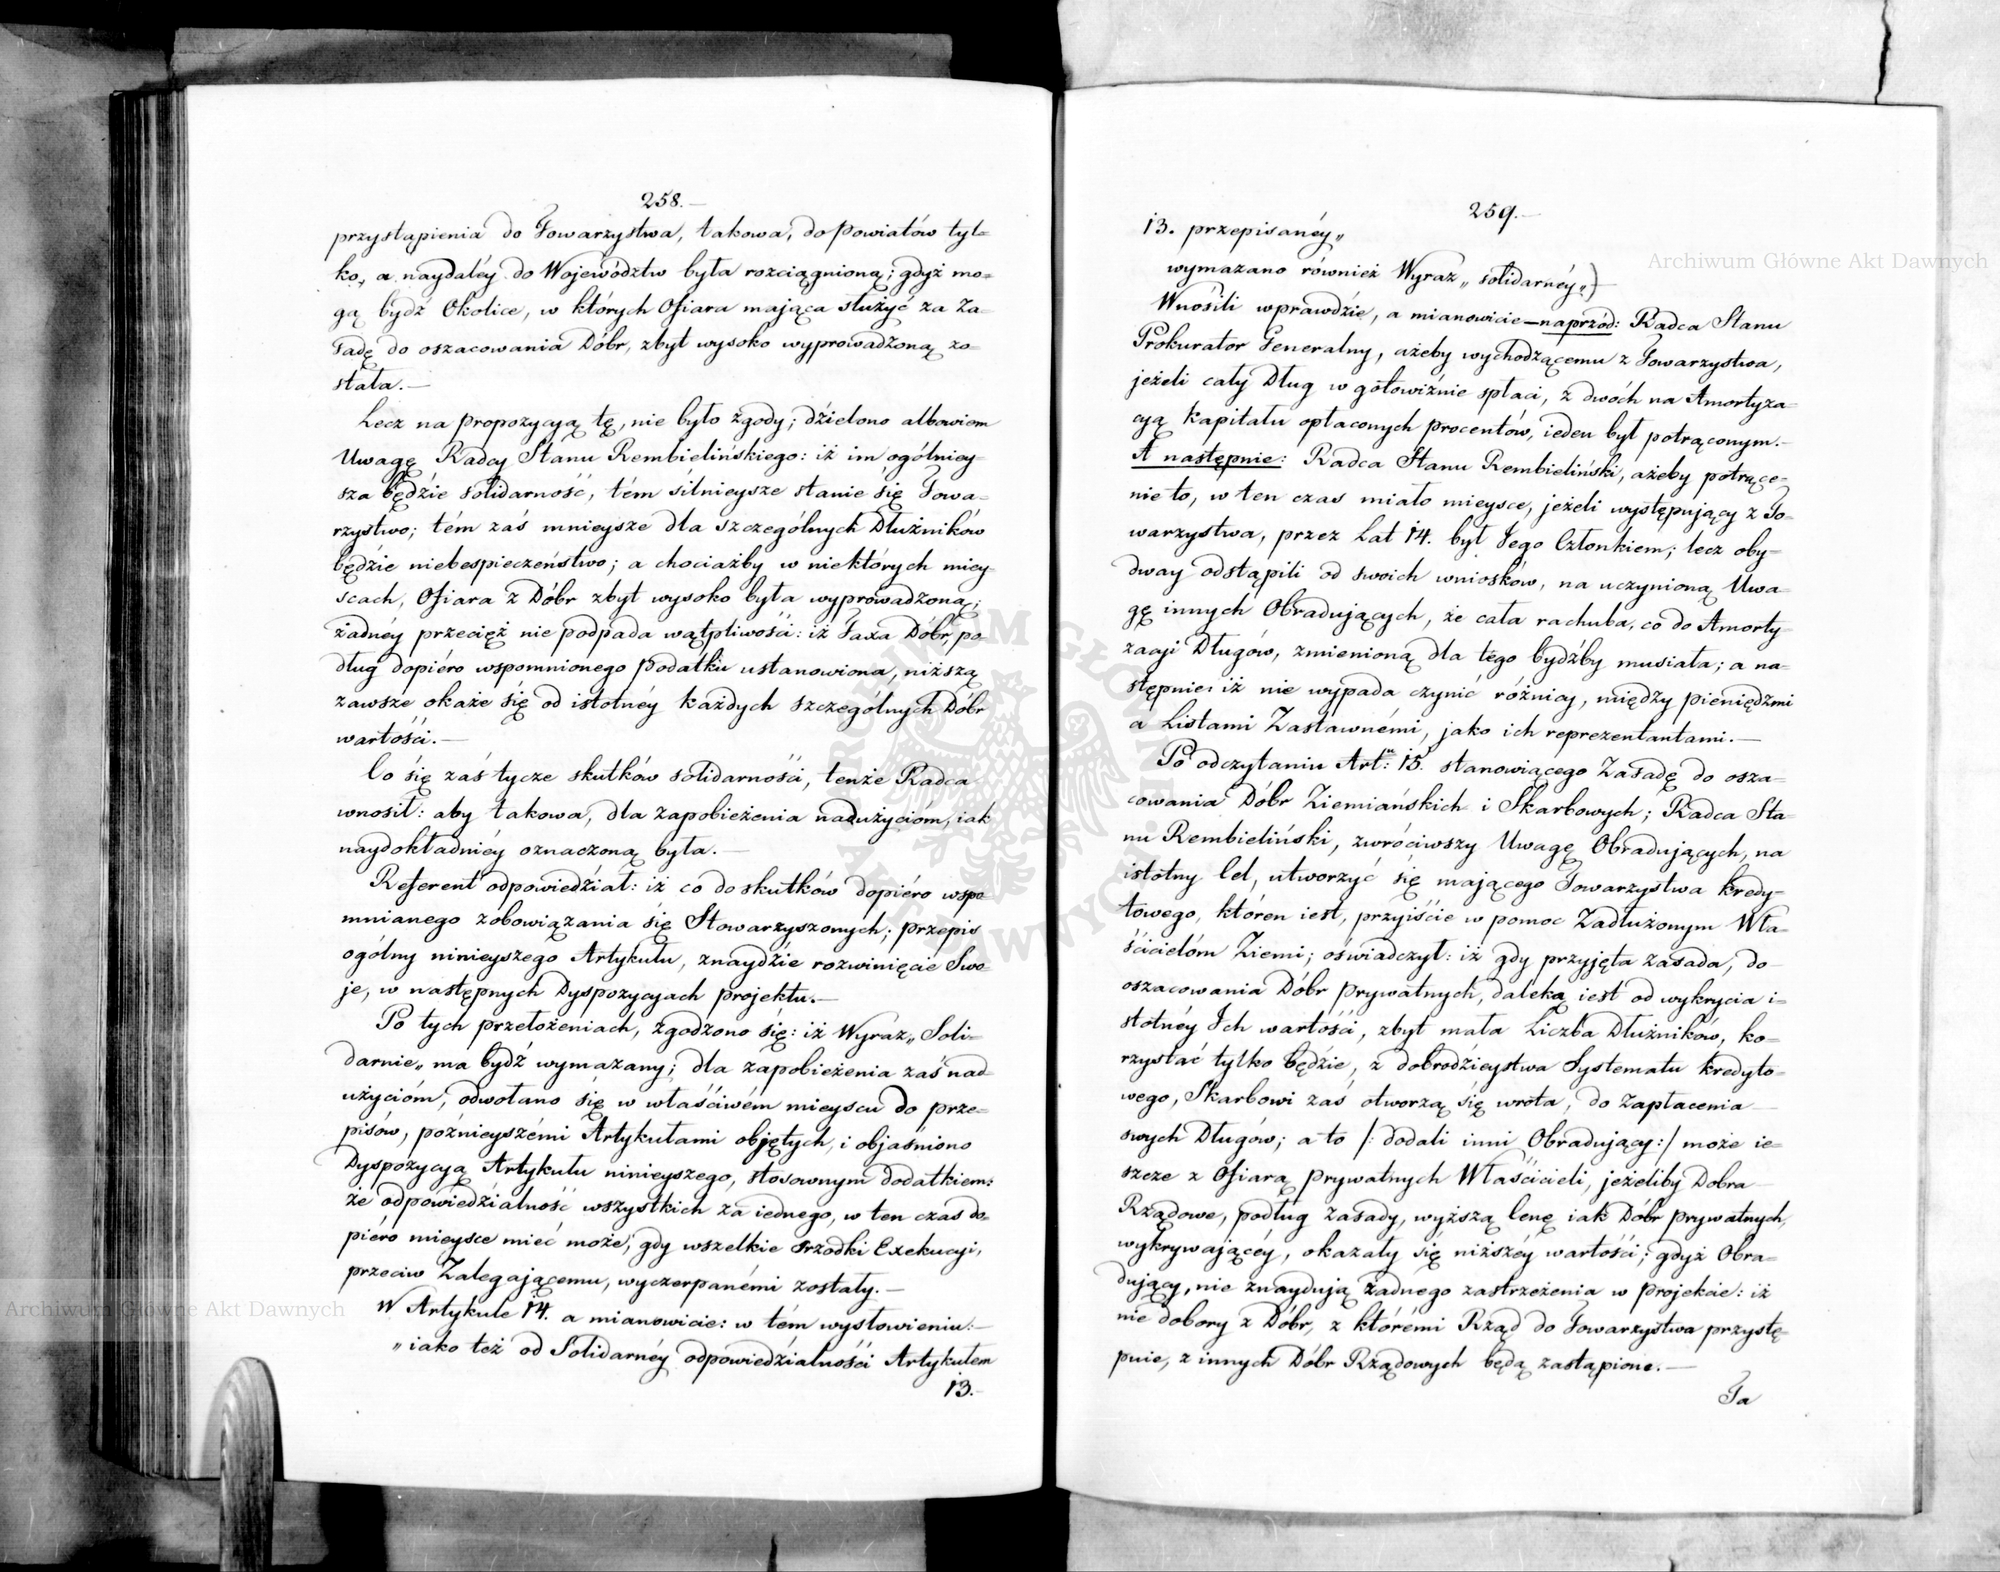 258.
przystąpienia do Towarzystwa, takowa, do Powiatów tyl=
ko, a naydaléy do Województw była rozciągnioną; gdyż mo=
gą bydź Okolice, w których Ofiara mająca służyć za Za=
sadę do oszacowania Dóbr, zbyt wysoko wyprowadzoną zo=
stała.—
Lecz na propozycyą tę, nie było zgody; dzielono albowiem
Uwagę Radcy Stanu Rembielińskiego: iż im ogólniey=
sza będzie solidarność, tém silnieysze stanie się Towa=
rzystwo; tém zaś mnieysze dla szczególnych Dłużników
będzie niebespieczeństwo; a chociażby w niektórych miey=
scach, Ofiara z Dóbr zbyt wysoko była wyprowadzoną;
żadnéy przecięż nie podpada wątpliwości: iż Taxa Dóbr, po=
dług dopiéro wspomnionego Podatku ustanowiona, niższą
zawsze okaże się od istotnéy każdych szczególnych Dóbr
wartości.—
Co się zaś tycze skutków solidarności, tenże Radca
wnosił: aby takowa, dla zapobieżenia nadużycióm, iak
naydokładniéy oznaczoną była.—
Referent odpowiedział: iż co do skutków dopiéro wspo=
mnianego zobowiązania się Stowarzyszonych; przepis
ogólny ninieyszego Artykułu, znaydzie rozwinięcie Swo=
je, w następnych Dyspozycyach projektu.—
Po tych przełożeniach, zgodzono się: iż Wyraz „Soli=
darnie„ ma bydź wymazany; dla zapobieżenia zaś nad=
użycióm, odwołano się w właściwém mieyscu do prze=
pisów, poźnieyszémi Artykułami objętych, i objaśniono
Dyspozycyą Artykułu ninieyszego, stosownym dodatkiem:
że odpowiedzialność wszystkich za iednego, w ten czas do=
piéro mieysce mieć może, gdy wszelkie srzodki Exekucyi,
przeciw Zalegającemu, wyczerpanémi zostały.—
W Artykule 14. a mianowicie: w tém wysłowieniu:—
„iako też od Solidarnéy odpowiedzialności Artykułem
13.—
259.—
13. przepisanéy„
wymazano również Wyraz „solidarnéy„)—
Wnosili wprawdzie, a mianowicie—naprzód: Radca Stanu
Prokurator Generalny, ażeby wychodzącemu z Towarzystwa,
jeżeli cały Dług w gotowiźnie spłaci, z dwóch na Amortyza=
cyą Kapitału opłaconych procentów, ieden był potrąconym.—
A następnie: Radca Stanu Rembieliński, ażeby potrące=
nie to, w ten czas miało mieysce, jeżeli występujący z To=
warzystwa, przez Lat 14. był Jego Członkiem; lecz oby=
dway odstąpili od swoich wniosków, na uczynioną Uwa=
gę innych Obradujących, że cała rachuba, co do Amorty=
zacyi Długów, zmienioną dla tego bydźby musiała; a na=
stępnie: iż nie wypada czynić różnicy, między pieniędzmi
a Listami Zastawnémi, jako ich reprezentantami.—
Po odczytaniu Artłu: 15. stanowiącego Zasadę do osza=
cowania Dóbr Ziemiańskich i Skarbowych; Radca Sta=
nu Rembieliński, zwróciwszy Uwagę Obradujących, na
istotny Cel, utworzyć się mającego Towarzystwa kredy=
towego, któren iest, przyiście w pomoc Zadłużonym Wła=
ścicielóm Ziemi; oświadczył: iż gdy przyjęta zasada, do—
oszacowania Dóbr Prywatnych, daleką iest od wykrycia i=
stotnéy Ich wartości, zbyt mała Liczba Dłużników, ko=
rzystać tylko będzie, z dobrodzieystwa Systematu kredyto=
wego, Skarbowi zaś otworzą się wrota, do zapłacenia—
swych Długów; a to /: dodali inni Obradujący:/ może ie=
szcze z Ofiarą Prywatnych Właścicieli, jeżeliby Dobra—
Rządowe, podług zasady, wyższą Cenę iak Dóbr prywatnych,
wykrywającéy, okazały się niższéy wartości; gdyż Obra=
dujący, nie znaydują żadnego zastrzeżenia w projekcie: iż
nie dobory z Dóbr, z którémi Rząd do Towarzystwa przystę=
puie, z innych Dóbr Rządowych będą zastąpione.—
Ta
Archiwum Główne Akt Dawnych
Archiwum Główne Akt Dawnych
ARCHIWUM GŁÓWNE AKT DAWNYCH